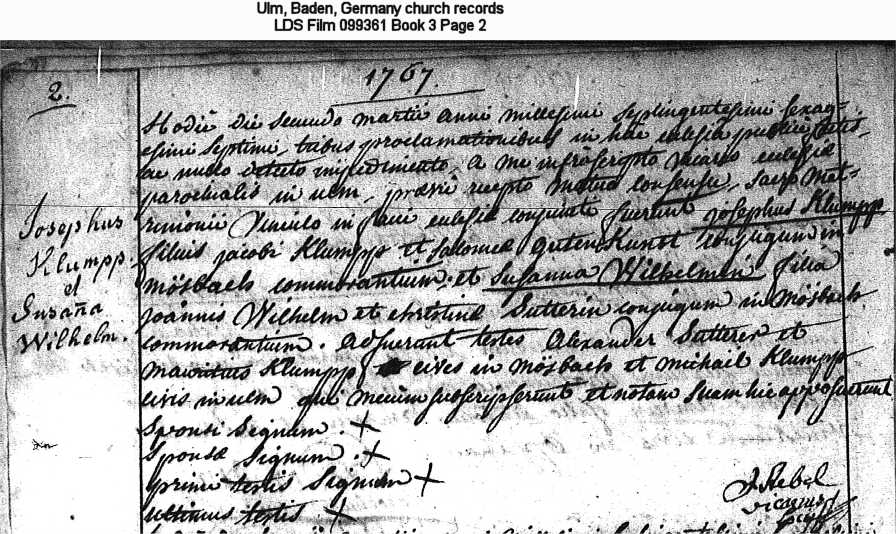 Ulm, Baden, Germany church records
LDS Film 099361 Book 3 Page 2
2.
1767.
Hodie die secundo martii anni millesimi septingentesimi sexag-
esimi septimi, tribus proclamationibus in hac ecclesia publice
ac nullo detecto impedimento, a me infrascripto vicario ecclesiæ
parochialis in ulm, prævie recepto mutuo consensu, sacro mat-
rimonii Vinculo in facie ecclesiæ conjuncti fuerunt josephus Klumpp
filius jacobi Klumpp et Salomeæ gutenKunst conjugum in
mösbach commorantium, et Susanna Wilhelmin filia
joannis Wilhelm et christinæ Sutterin conjugum in Mösbach
commorantium. adfuerunt testes Alexander Sutterer et
Klumpp cives in mösbach et michael Klumpp
civis in ulm qui mecum subscripserunt et notam suam hic apposuerunt
Sponsi Signum. +
Sponsæ Signum. +
primi testis Signum +
ultimus testis +
Josephus
Klumpp.
et
Susaña
Wilhelm.
J. Rebel
vicarius